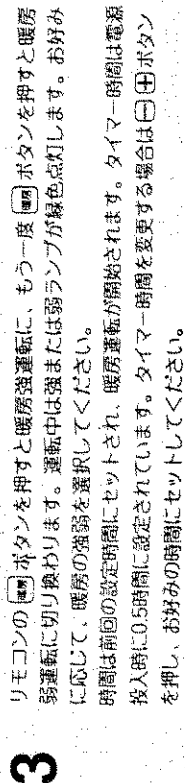 3
リモコンの[暖房]ボタンを押すと暖房強運転に、もう一度[暖房]ボタンを押すと暖房
弱運転に切り換わります。運転中は強または弱ランプが緑色点灯します。お好み
に応じて、暖房の強弱を選択してください。
時間は前回の設定時間にセットされ、暖房運転が開始されます。タイマー時間は電源
投入時に0.5時間に設定されています。タイマー時間を変更する場合は[-][+]ボタン
を押し、お好みの時間にセットしてください。